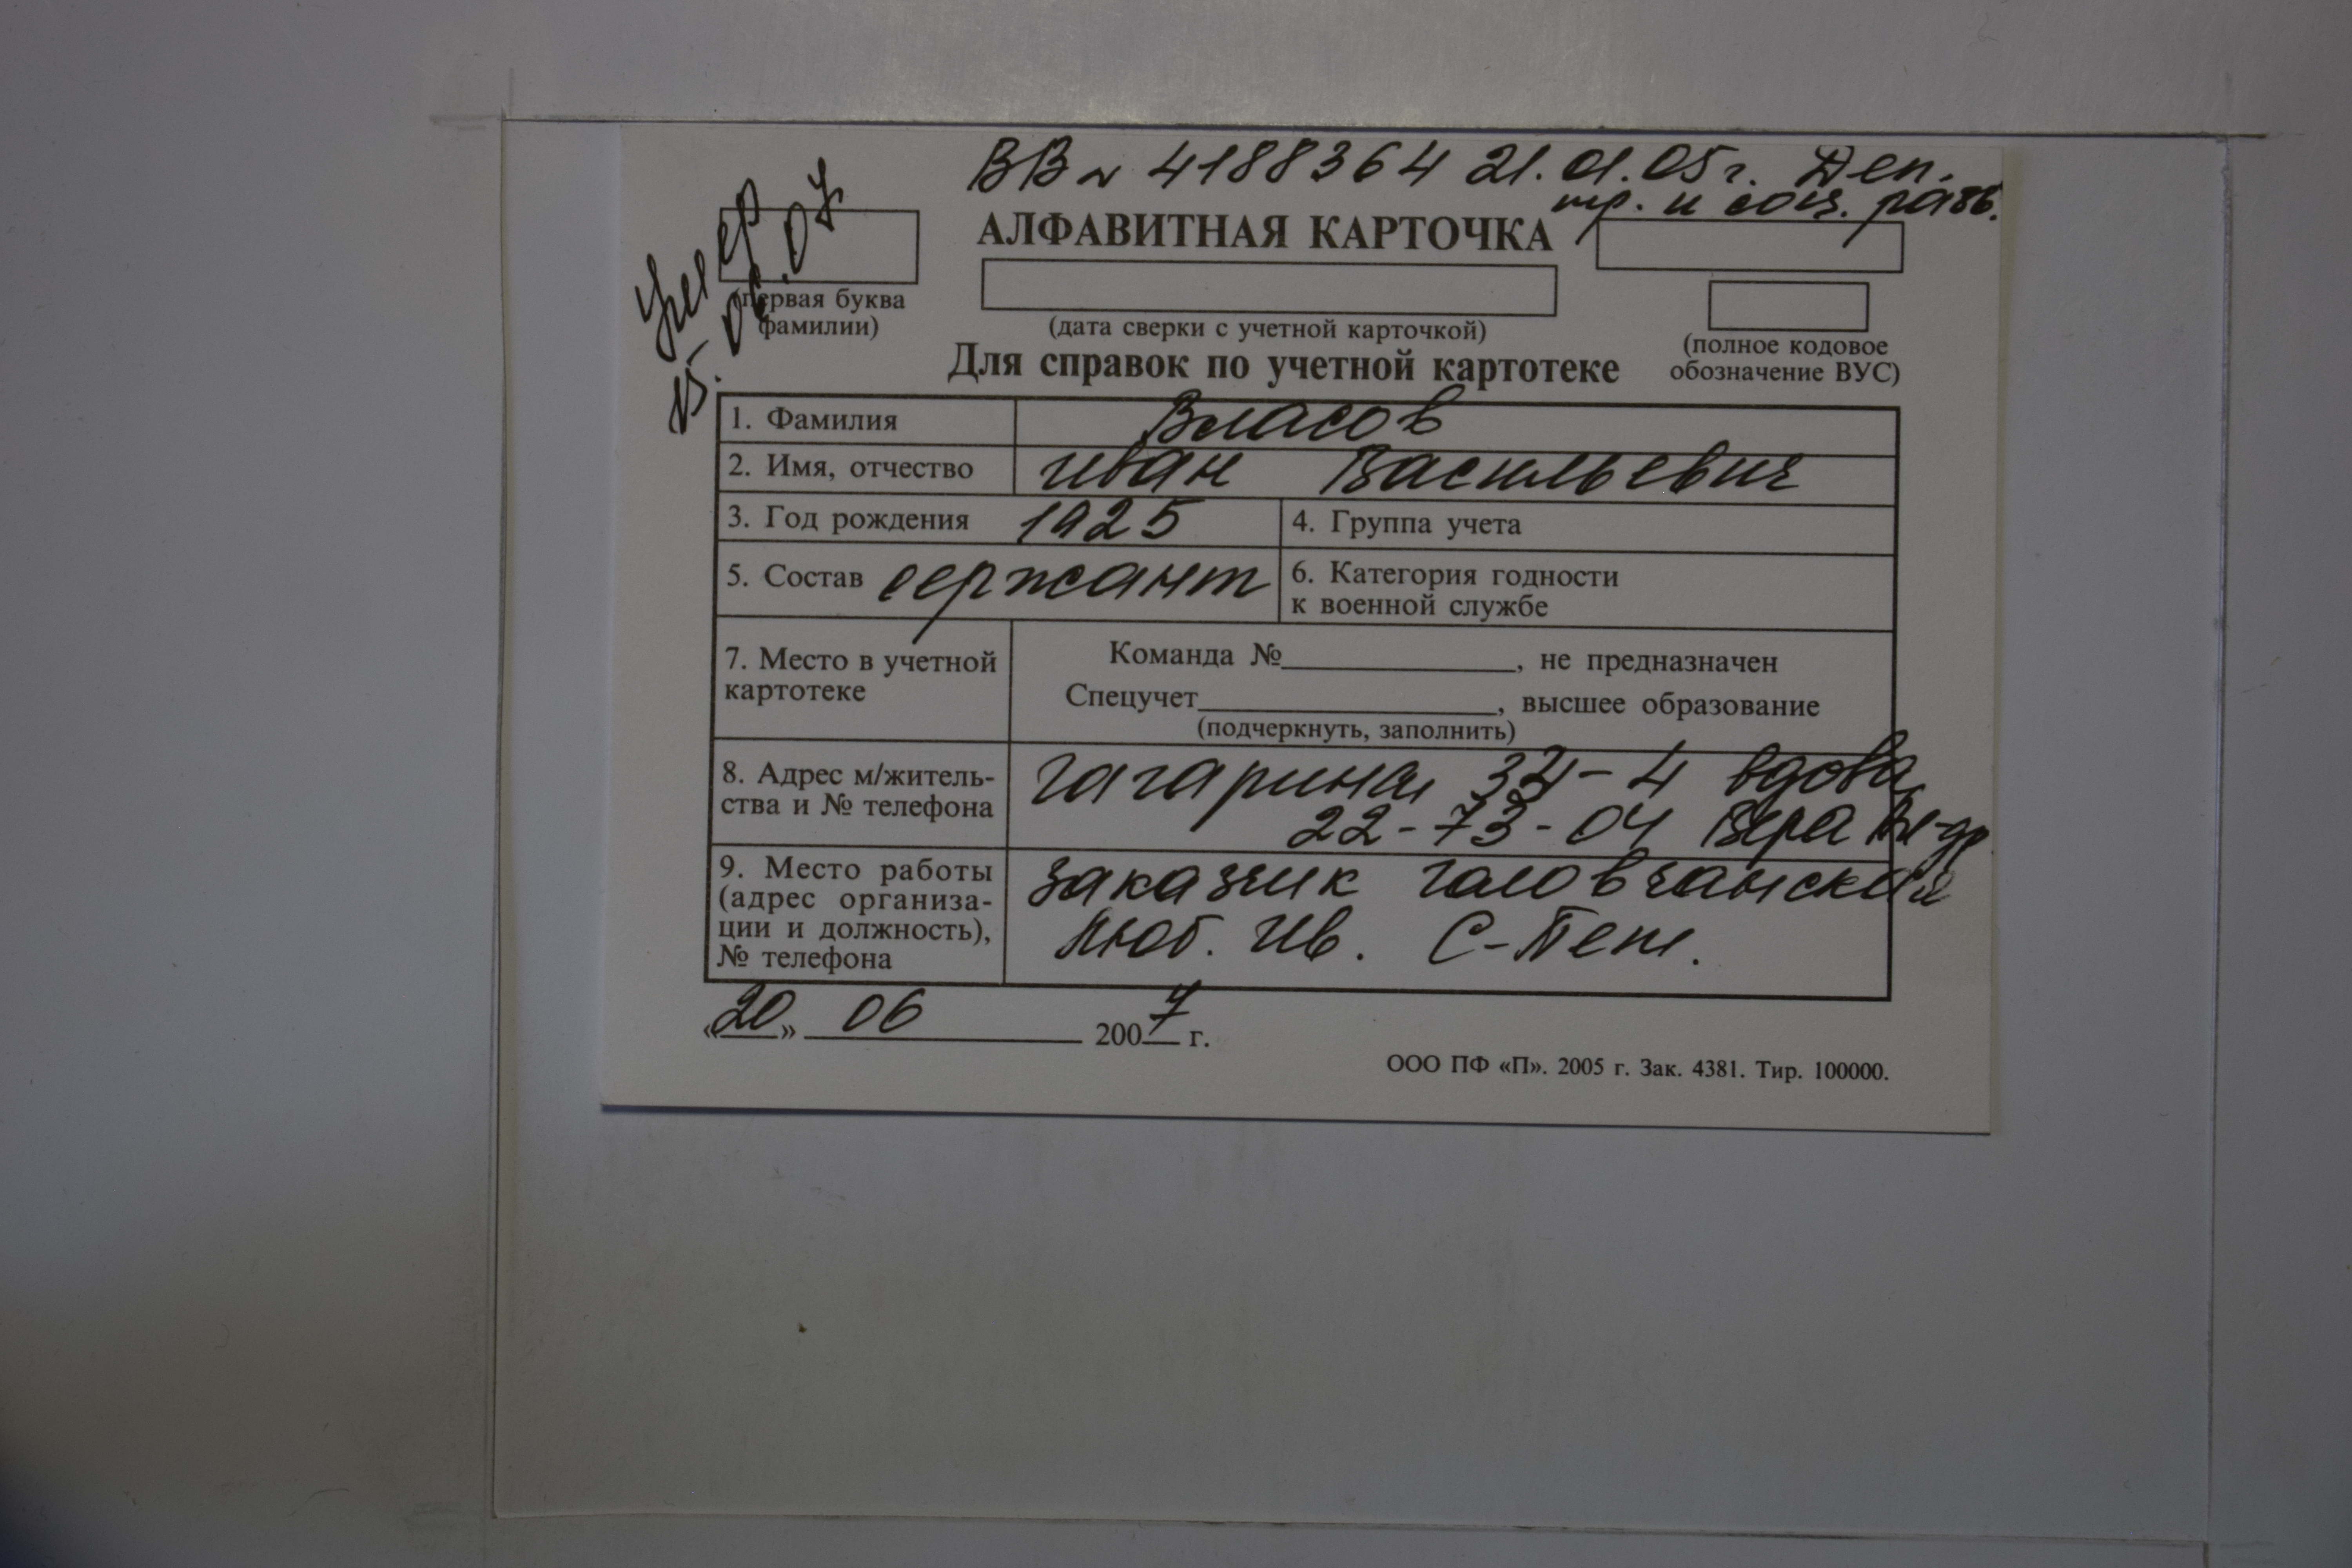 ВВ № 4188364 21.01.05г. Деп.
тр. и соц. разв.
умер
15.06.07
АЛФАВИТНАЯ КАРТОЧКА
(первая буква
фамилии)
(дата сверки с учетной карточкой)
(полное кодовое
обозначение ВУС)
Для справок по учетной картотеке
1. Фамилия Власов
2. Имя, отчество Иван Васильевич
3. Год рождения 1925 4. Группа учета
5. Состав сержант 6. Категория годности
к военной службе
7. Место в учетной
картотеке
Команда №, не предназначен
Спецучет, высшее образование
(подчеркнуть, заполнить)
8. Адрес м/житель-
ства и № телефона
Гагарина 34-4 вдова
22-73-04 Вера
9. Место работы
(адрес организа-
ции и должность),
№ телефона
заказчик Головчанская
Люб. Ив. С-Пет.
«20» 06 2007 г.
ООО ПФ «П». 2005 г. Зак. 4381. Тир. 100000.